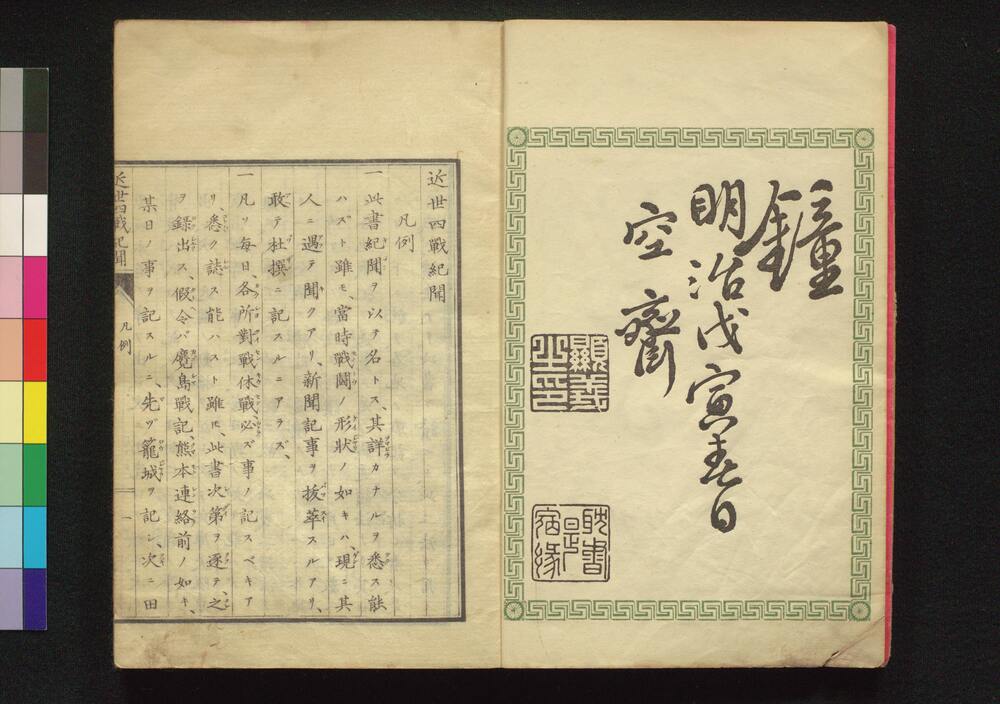 鐘
明治戊寅春日
空齋
顯義之印
耽書是宿緣
近世四戰紀聞
凡例
一此書紀聞ヲ以テ名トス、其詳カナルヲ悉ス能
ハズト雖モ、當時戰鬪ノ形狀ノ如キハ、現ニ其
人ニ遇テ聞クアリ、新聞記事ヲ拔萃スルアリ、
敢テ杜撰ニ記スルニアラズ、
一凡ソ每日、各所對戰休戰必ズ事ノ記スベキア
リ、悉ク誌ス能ハスト雖𪜈此書次第ヲ逐テ、之
ヲ錄出ス、假令バ麑島戰記、熊本連絡前ノ如キ、
某日ノ事ヲ記スルニ、先ヅ籠城ヲ記シ、次ニ田
近世四戰紀聞
凡例
一